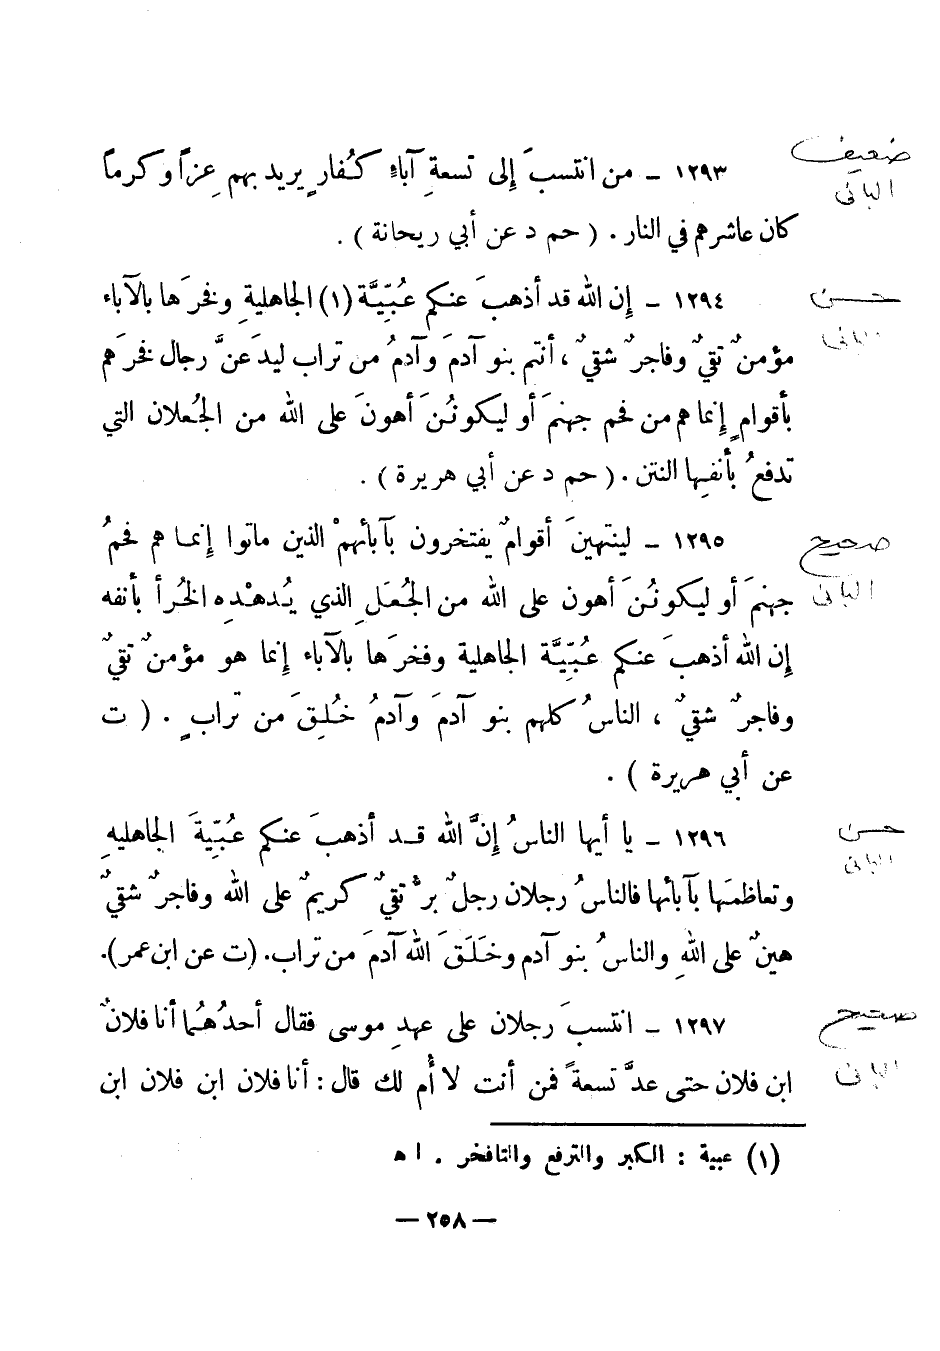 ضعيف
١٢٩٣ ـ من انتسبَ إلى تسعةِ آباءٍ كُفارٍ يريد بهم عِزاً وكرماً
البانى
كان عاشرهم في النار . ( حم د عن أبي ريحانة ) .
حسن
١٢٩٤ ـ إن الله قد أذهبَ عنكم عُبِّيَّة (١) الجاهليةِ وفخرَها بالآباء
البانى
مؤمنٌ تقيٌ وفاجرٌ شقيٌ ، أنتم بنو آدمَ وآدمُ من تراب ليدَعنَّ رجال فخرَهم
بأقوامٍ إنما هم من فحم جهنمَ أو ليكونُنَ أهونَ على الله من الجُعلان التي
تدفعُ بأنفِها النتن . ( حم د عن أبي هريرة ) .
صحيح
١٢٩٥ ـ لينتهينَ أقوامٌ يفتخرون بآبائهمْ الذين ماتوا إنما هم فحمُ
البانى
جهنمَ أو ليكونُنَ أهون على الله من الجُعَلِ الذي يُدهْدِه الخُرأ بأنفه
إن الله أذهبَ عنكم عُبِّيَّة الجاهلية وفخرَها بالآباء إنما هو مؤمنٌ تقيٌ
وفاجرٌ شقيٌ ، الناسُ كلهم بنو آدمَ وآدمُ خُلِقَ من ترابٍ . ( ت
عن أبي هريرة ) .
حسن
١٢٩٦ ـ يا أيها الناسُ إنَّ الله قد أذهبَ عنكم عُبِّيةَ الجاهليهِ
البانى
وتعاظمَها بآبائها فالناسُ رجلان رجلٌ برٌ تقيٌ كريمٌ على الله وفاجرٌ شقيٌ
هينٌ على اللهِ والناسُ بنو آدم وخَلَقَ الله آدمَ من تراب. (ت عن ابن عمر).
صحيح
١٢٩٧ ـ انتسبَ رجلان على عهدِ موسى فقال أحدُهُما أنا فلانٌ
البانى
ابن فلان حتى عدَّ تسعةً فمن أنت لا أُم لك قال : أنا فلان ابن فلان ابن
(١) عبية : الكبر والترفع والتافخر . ا ه
— ٢٥٨ —